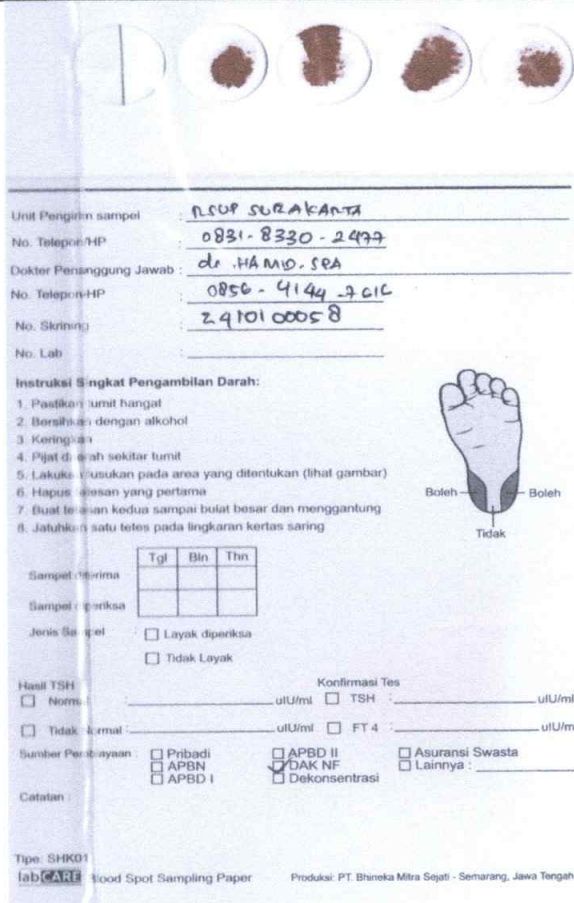 Unit Pengirim sampel : RSUP SURAKARTA
No. Telepon/HP : 0831-8330-2477
Dokter Penanggung Jawab : dr. HAMID. SPA
No. Telepon/HP : 0856-4144-7616
No. Skrining : 24101 00058
No. Lab :
Instruksi Singkat Pengambilan Darah:
1. Pastikan tumit hangat
2. Bersihkan dengan alkohol
3. Keringkan
4. Pijat daerah sekitar tumit
5. Lakukan tusukan pada area yang ditentukan (lihat gambar)
6. Hapus tetesan yang pertama
7. Buat tetesan kedua sampai bulat besar dan menggantung
8. Jatuhkan satu tetes pada lingkaran kertas saring
Boleh Boleh
Tidak
Tgl Bln Thn
Sampel diterima
Sampel diperiksa
Jenis Sampel : Layak diperiksa
Tidak Layak
Hasil TSH Konfirmasi Tes
Normal : uIU/ml TSH : uIU/ml
Tidak Normal : uIU/ml FT 4 : uIU/m
Sumber Pembiayaan : Pribadi APBD II Asuransi Swasta
APBN DAK NF Lainnya :
APBD I Dekonsentrasi
Catatan :
Tipe: SHK01
labCARE Blood Spot Sampling Paper Produksi: PT. Bhineka Mitra Sejati - Semarang, Jawa Tengah